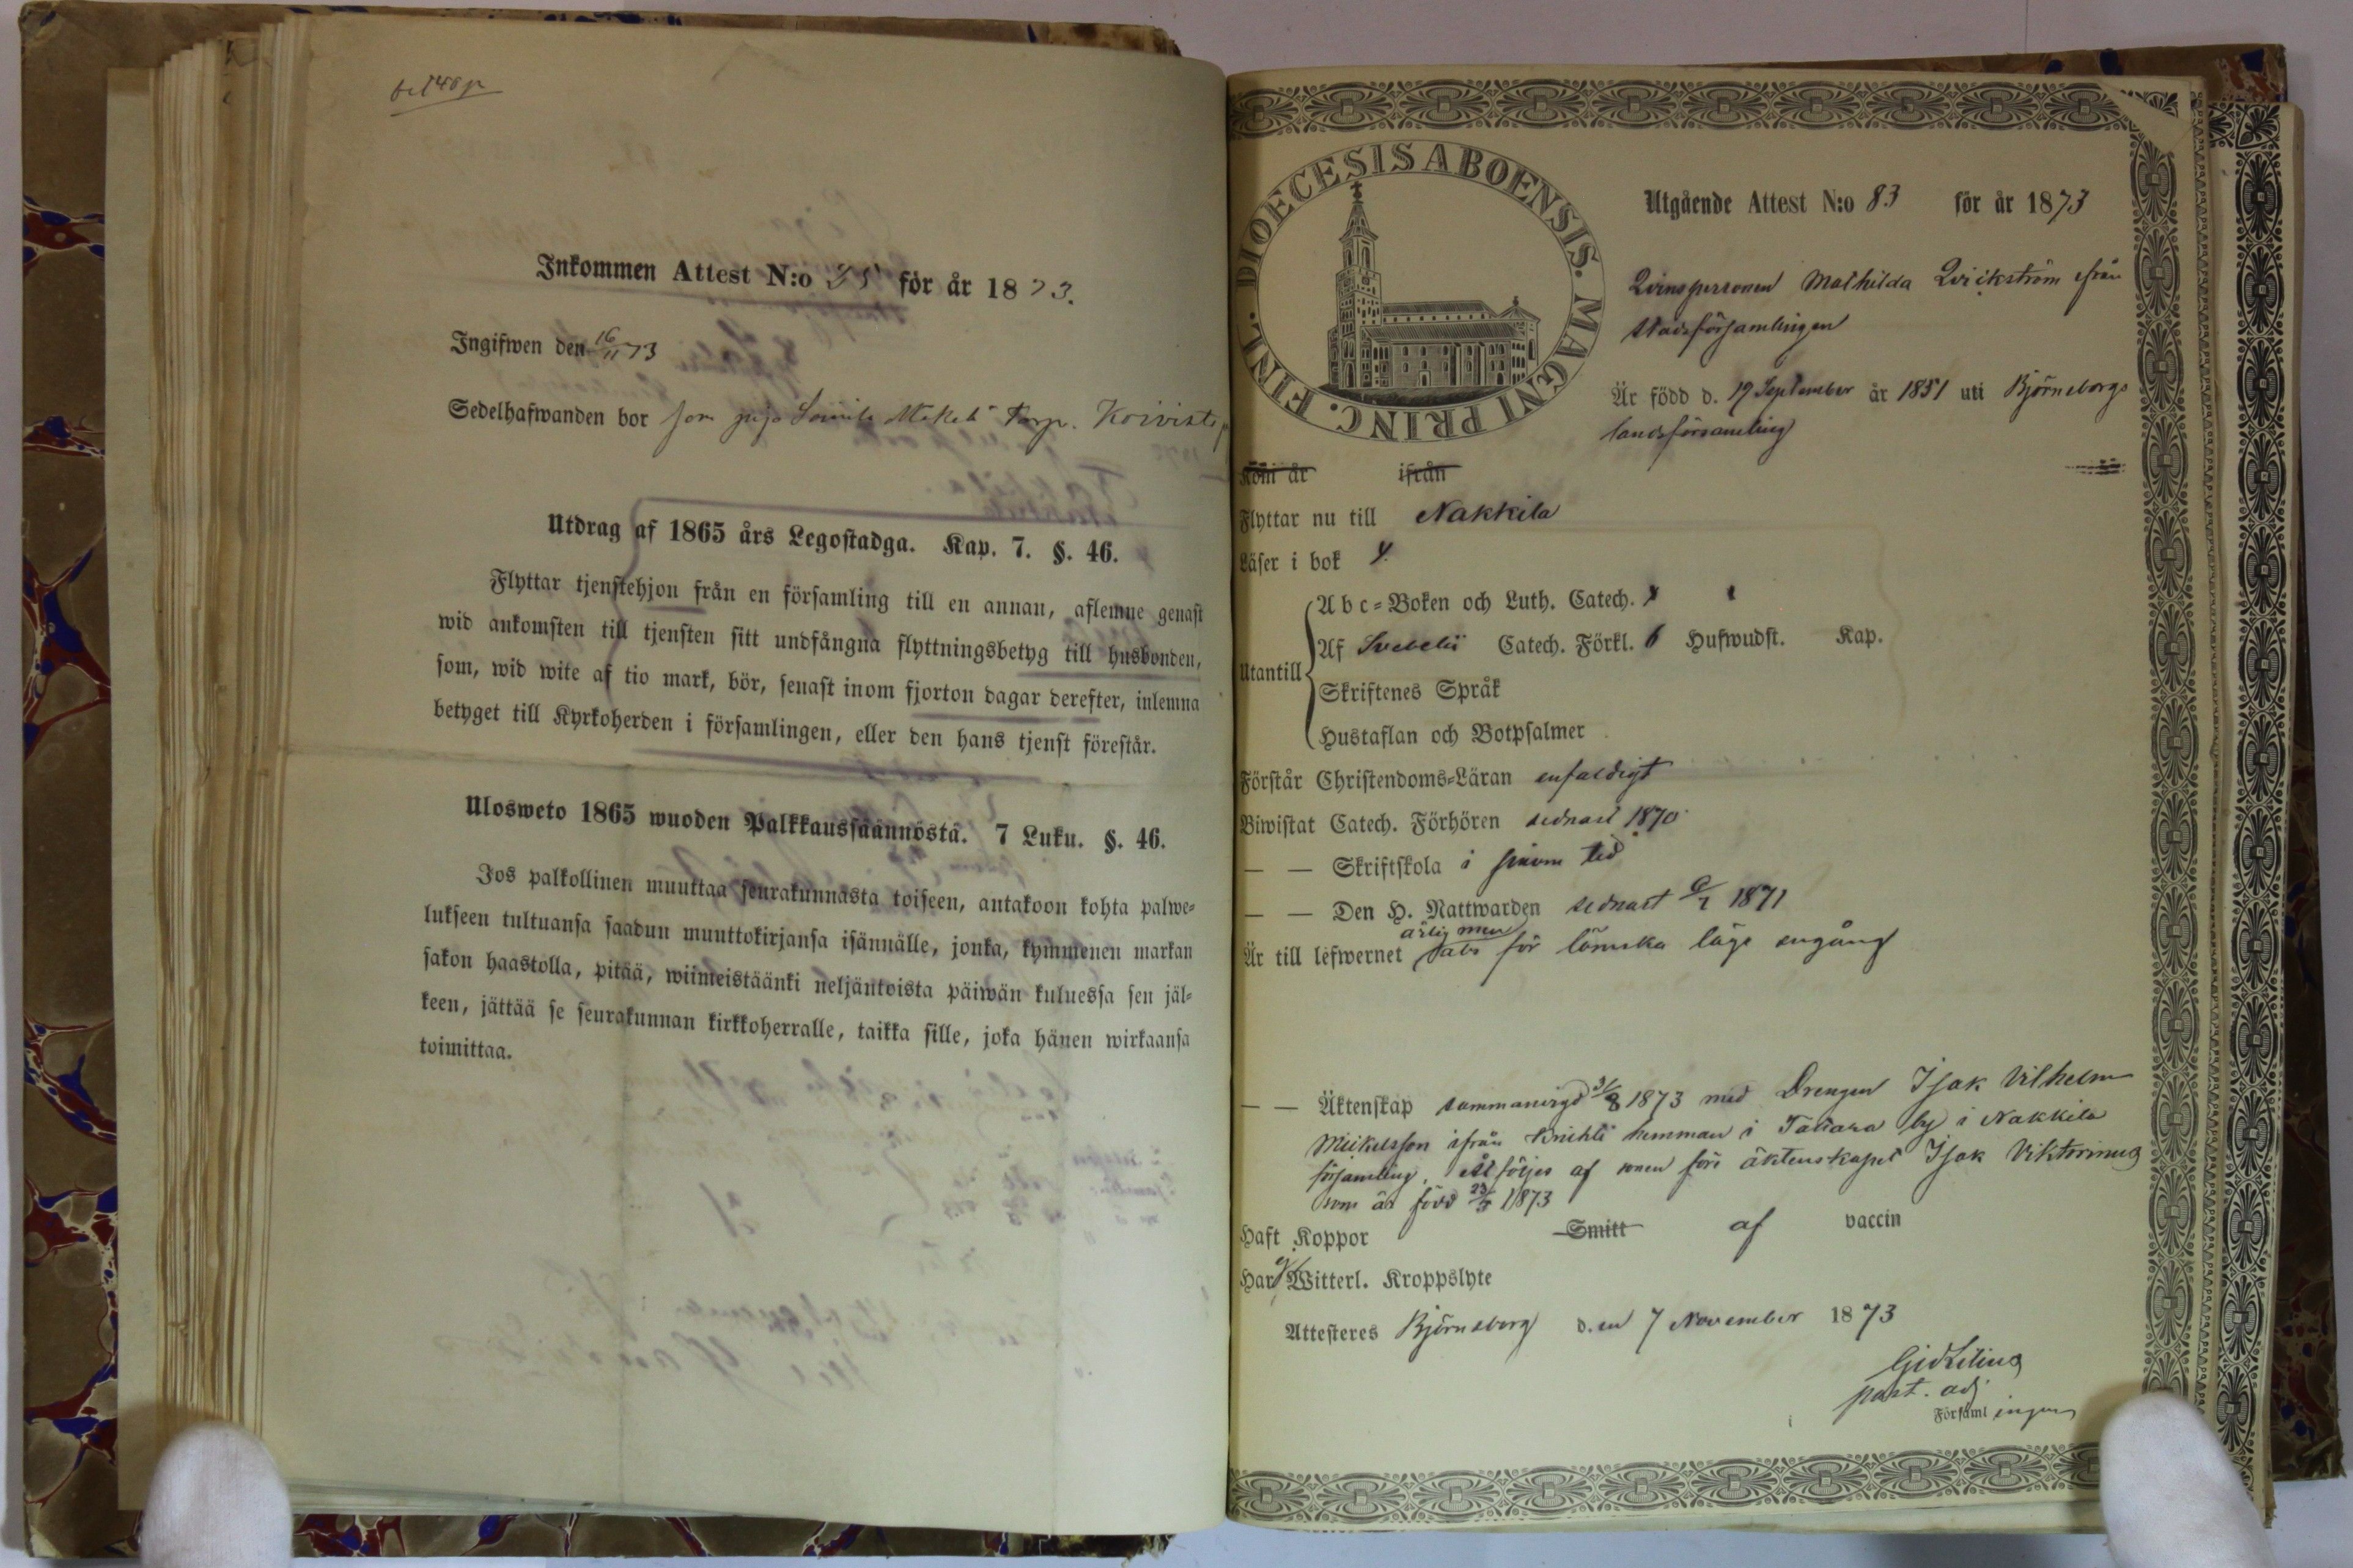 Inkommen Attest N:o 35 för år 1873.
Ingifwen den 16/11 73
Sedelhafwanden bor som piga Torp. Koivisto
Utdrag af 1865 års Legostadga. Kap. 7. §. 46.
Flyttar tjenstehjon från en församling till en annan, aflemne genast
wid ankomsten till tjensten sitt undfångna flyttningsbetyg till husbonden,
som, wid wite af tio mark, bör, senast inom fjorton dagar derefter, inlemna
betyget till Kyrkoherden i församlingen, eller den hans tjenst förestår.
Ulosweto 1865 wuoden Palkkaussäännöstä. 7 Luku. §. 46.
Jos palkollinen muuttaa seurakunnasta toiseen, antakoon kohta palwe-
lukseen tultuansa saadun muuttokirjansa isännälle, jonka, kymmenen markan
sakon haastolla, pitää, wiimeistäänki neljäntoista päiwän kuluessa sen jäl-
keen, jättää se seurakunnan kirkkoherralle, taikka sille, joka hänen wirkaansa
toimittaa.
DIOECESIS ABOENSIS. MAGNI PRINC. FINL.
Utgående Attest N:o 83 för år 1873
Qvinspersonen Mathilda Qvickström ifrån
stadsförsamlingen
Är född d. 17 September år 1851 uti Björneborgs
landsförsamling
Kom år ifrån
Flyttar nu till Nakkila
Läser i bok y.
Utantill
Abc-Boken och Luth. Catech. x
Af Svebelii Catech. Förkl. 6 Hufwudst. Kap.
Skriftenes Språk
Hustaflan och Botpsalmer
Förstår Christendoms-Läran enfaldigt
Biwistat Catech. Förhören sednast 1870
— — Skriftskola i sinom tid
— — Den H. Nattwarden sednast 1871
ärlig men
Är till lefwernet för lönska läge engång
— — Äktenskap sammanvigd 31/8 1873 med Drengen Isak Vilhelm
Mickelsson ifrån Knichti hemman i Tattara by i Nakkila
församling. Åtföljes af sonen före äktenskapet Isak Viktorinus
som är född 1873
Haft Koppor Smitt af vaccin
Har ej Witterl. Kroppslyte
Attesteres Björneborg d.en 7 November 1873
Gid Lilius
past. adj
i Församlingen